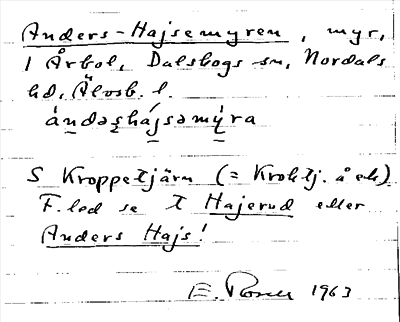 Anders-Hajsemyren, myr,
i Årbol, Dalskogs sn, Nordals
hd, Älvsb. l.
ándəşhájsəmỳra
S Kroppetjärn (= Kroktj. å ek)
F. led se t Hajerud eller
Anders Hajs!
E. 1963